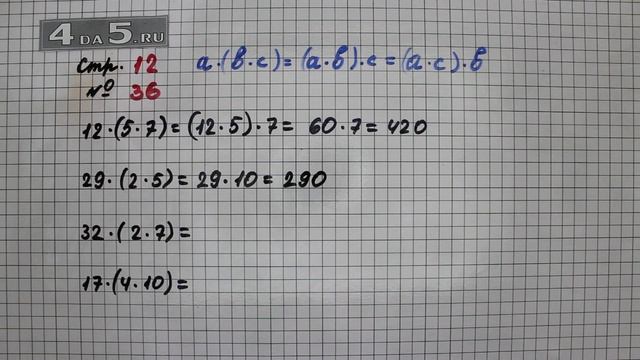 4 DA 5.RU
стр. 12 a·(b·c)=(a·b)·c=(a·c)·b
№ 36
12·(5·7)=(12·5)·7= 60·7=420
29·(2·5)=29·10=290
32·(2·7)=
17·(4·10)=